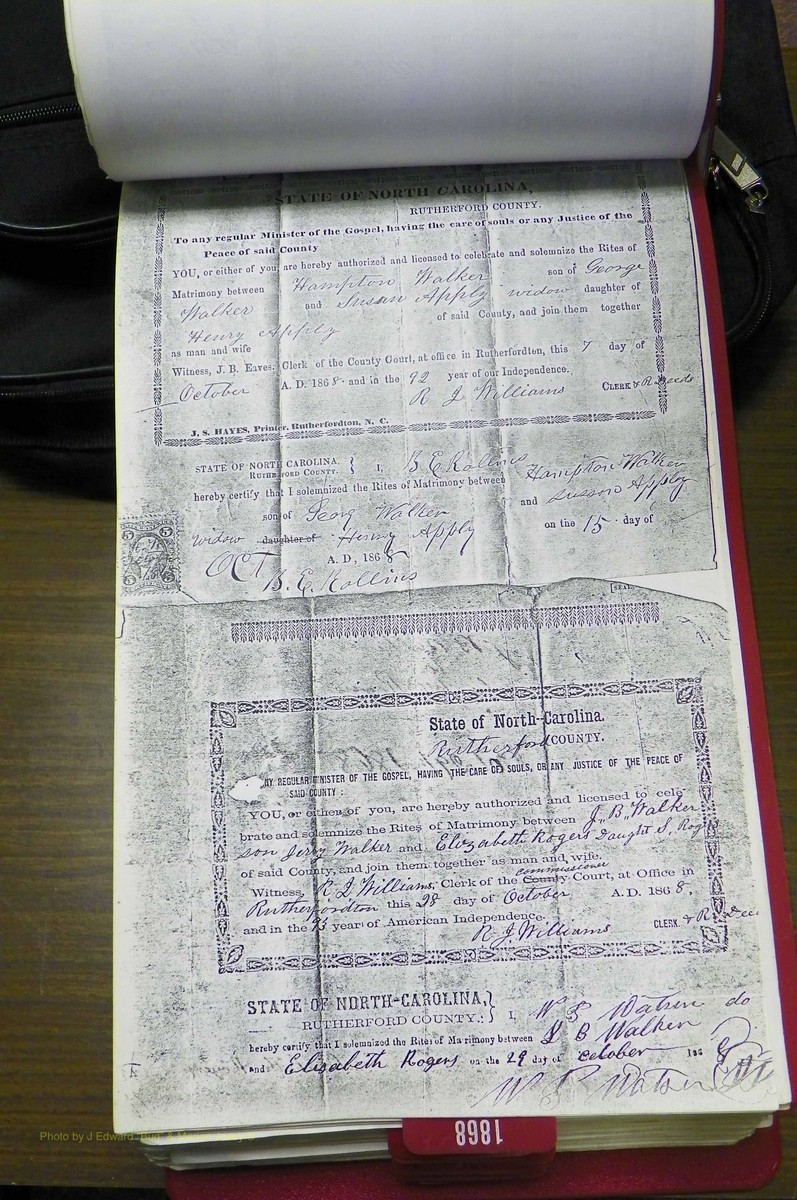 STATE OF NORTH CAROLINA,
RUTHERFORD COUNTY.
To any regular Minister of the Gospel, having the care of souls or any Justice of the
Peace of said County
YOU, or either of you, are hereby authorized and licensed to celebrate and solemnize the Rites of
Matrimony between Hampton Walker son of George
Walker and Susan Apply widow daughter of
Henry Apply of said County, and join them together
as man and wife
Witness, J. B. Eaves, Clerk of the County Court, at office in Rutherfordton, this 7 day of
October A. D. 1868 and in the 92 year of our Independence.
R J Williams CLERK & R Deeds
J. S. HAYES, Printer, Rutherfordton, N. C.
STATE OF NORTH CAROLINA.
RUTHERFORD COUNTY. } I, B. E. Rollins
hereby certify that I solemnized the Rites of Matrimony between Hampton Walker
son of Georg Walker and Susson Apply
widow daughter of Henry Apply on the 15 day of
OCT A. D, 1868
B. E. Rollins
[SEAL]
5 5
State of North-Carolina.
Rutherford COUNTY.
ANY REGULAR MINISTER OF THE GOSPEL, HAVING THE CARE OF SOULS, OR ANY JUSTICE OF THE PEACE OF
SAID COUNTY:
YOU, or either of you, are hereby authorized and licensed to cele
brate and solemnize the Rites of Matrimony between J. B. Walker
son Jerry Walker and Elizabeth Rogers Daught S. Rog
of said County, and join them together as man and wife.
commissioner
Witness, R J Williams, Clerk of the County Court, at Office in
Rutherfordton this 28 day of October A. D. 1868,
and in the 93 year of American Independence.
R. J. Williams CLERK. & R Dee
STATE OF NORTH-CAROLINA,
RUTHERFORD COUNTY.: } I, Watson do
hereby certify that I solemnized the Rites of Marimony between J B Walker
and Elisabeth Rogers on the 29 day of October 1868
Watson
1868
Photo by J Edward